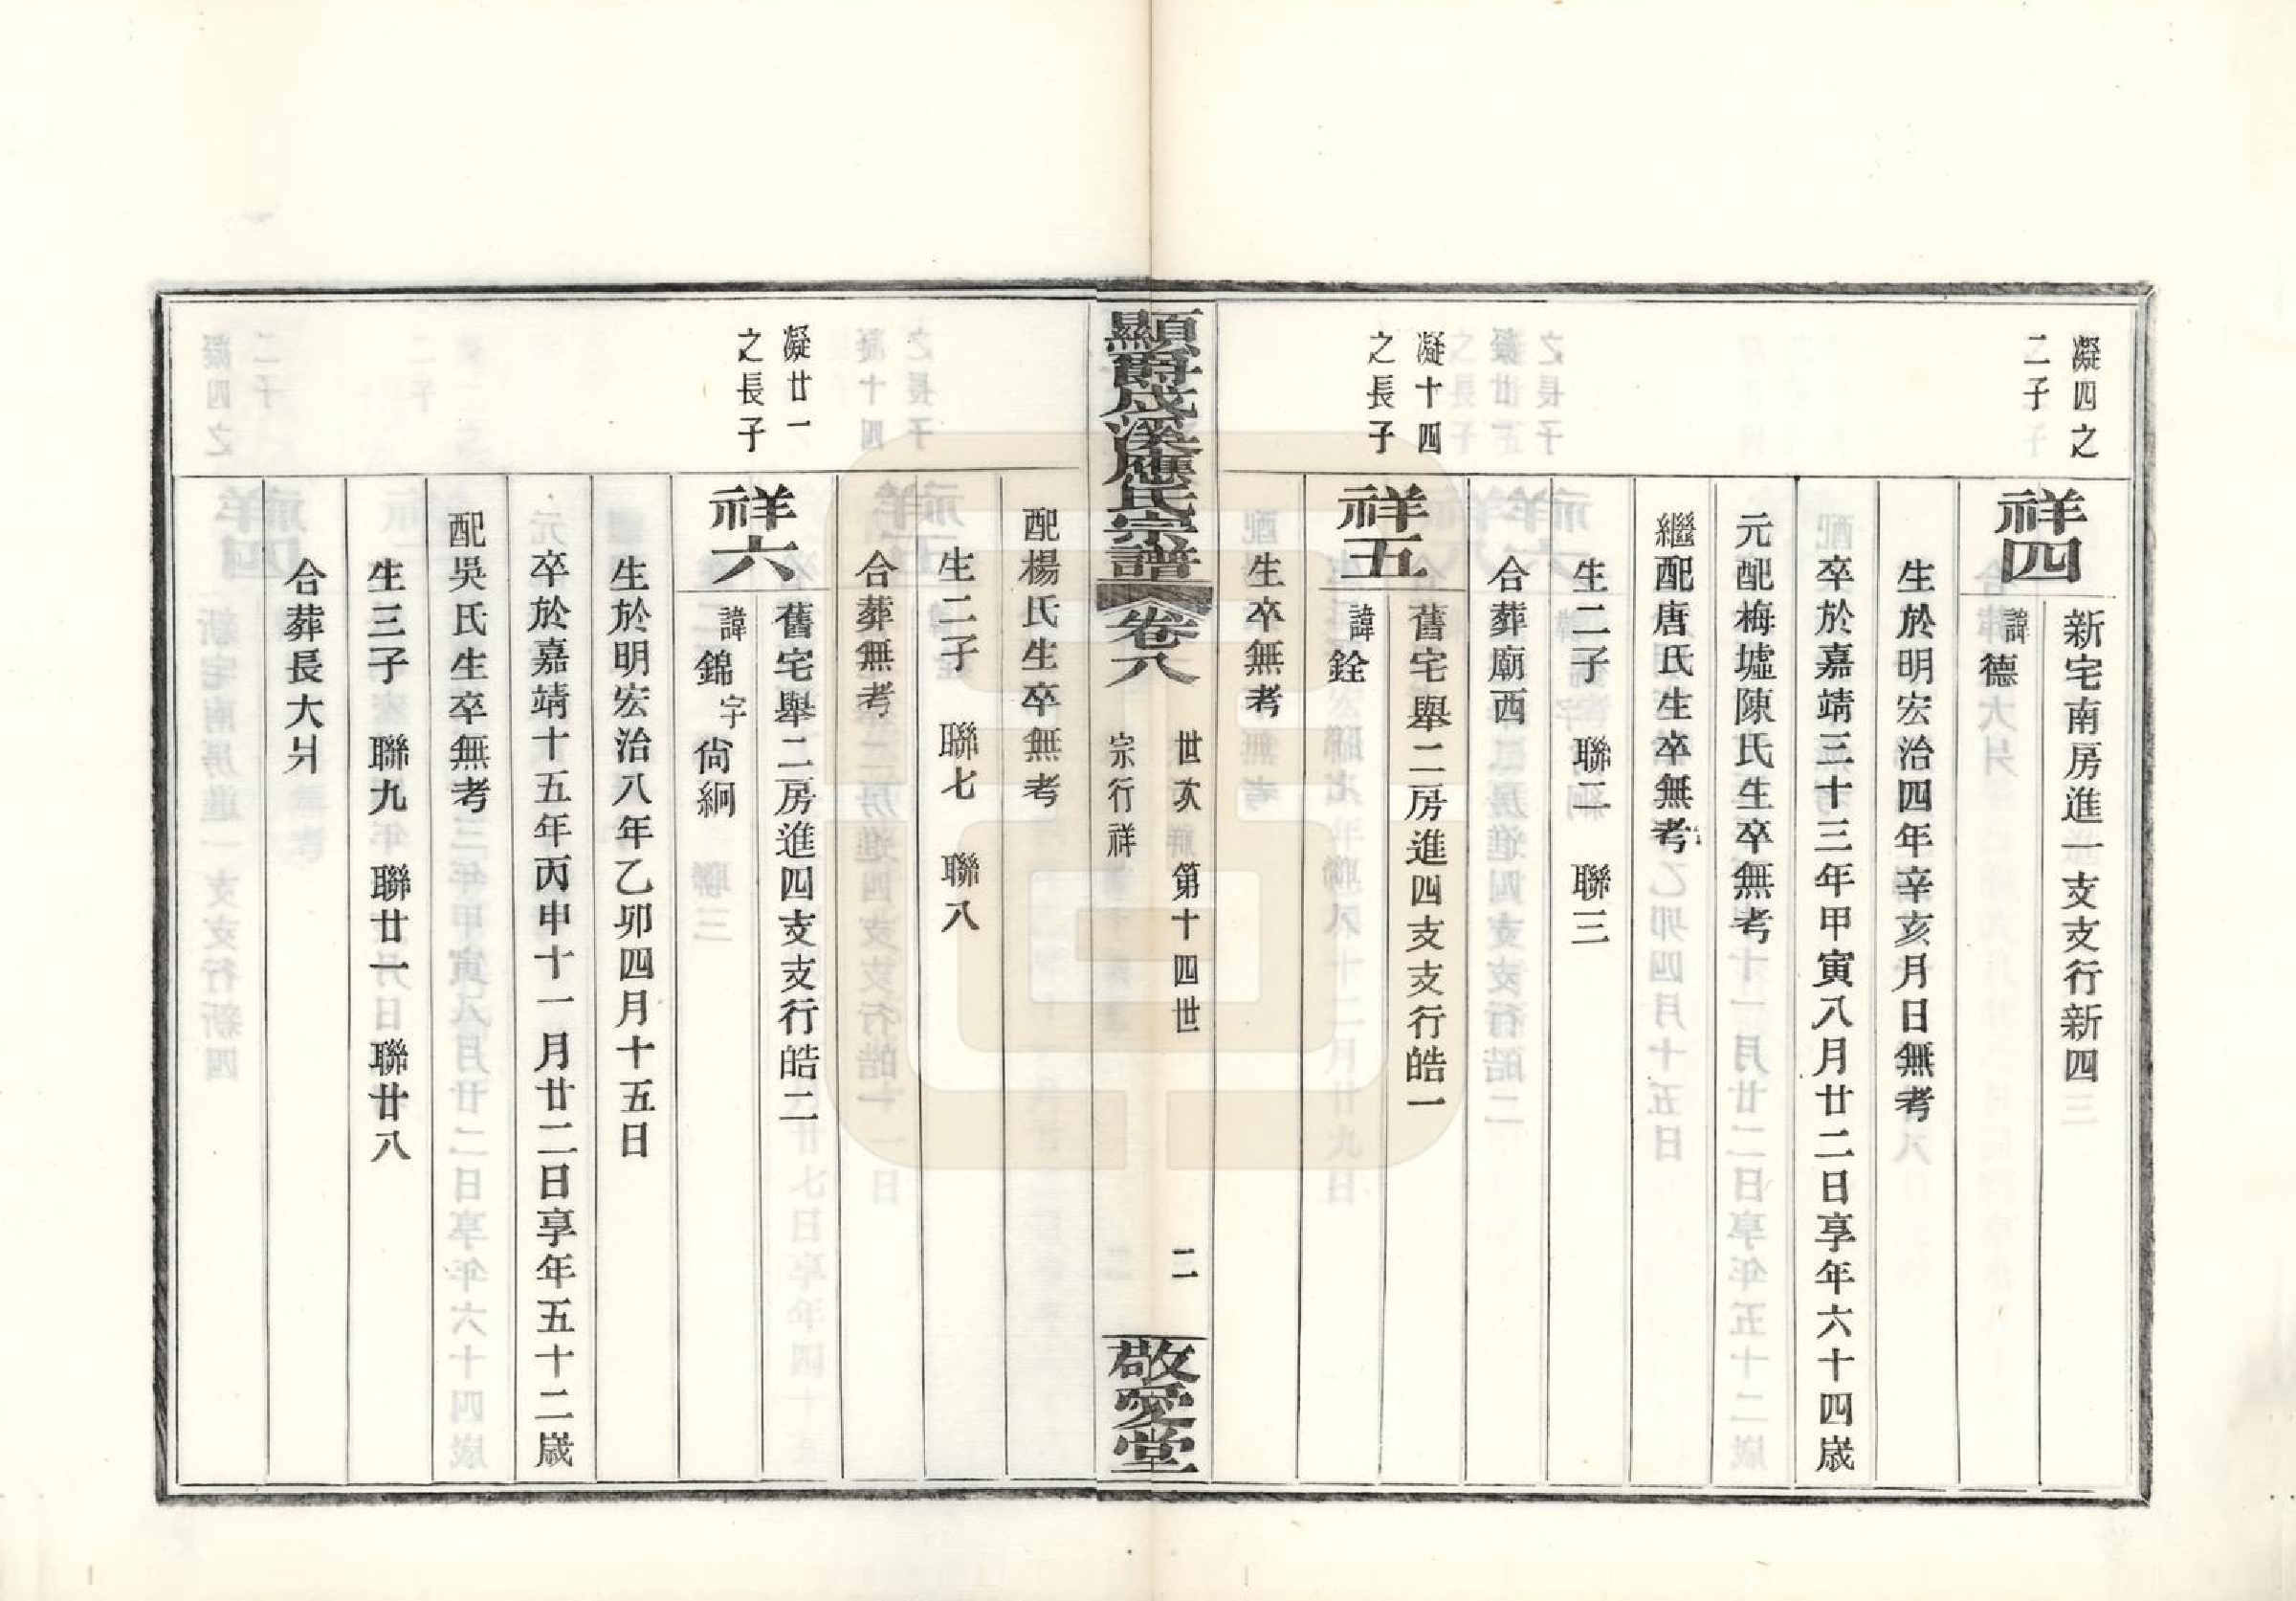 凝四之
二子
祥四
新宅南房進一支支行新四
諱德
生於明宏治四年辛亥月日無考
卒於嘉靖三十三年甲寅八月廿二日享年六十四歲
元配梅墟陳氏生卒無考
繼配唐氏生卒無考
生二子　聯二　聯三
合葬廟西
凝十四
之長子
祥五
舊宅舉二房進四支支行皓一
諱銓
生卒無考
顯爵成溪應氏宗譜
卷八
世次　第十四世　二
宗行祥
敬愛堂
配楊氏生卒無考
生二子　聯七　聯八
合葬無考
凝廿一
之長子
祥六
舊宅舉二房進四支支行皓二
諱錦字尙絅
生於明宏治八年乙卯四月十五日
卒於嘉靖十五年丙申十一月廿二日享年五十二歲
配吳氏生卒無考
生三子　聯九　聯廿一　聯廿八
合葬長大爿